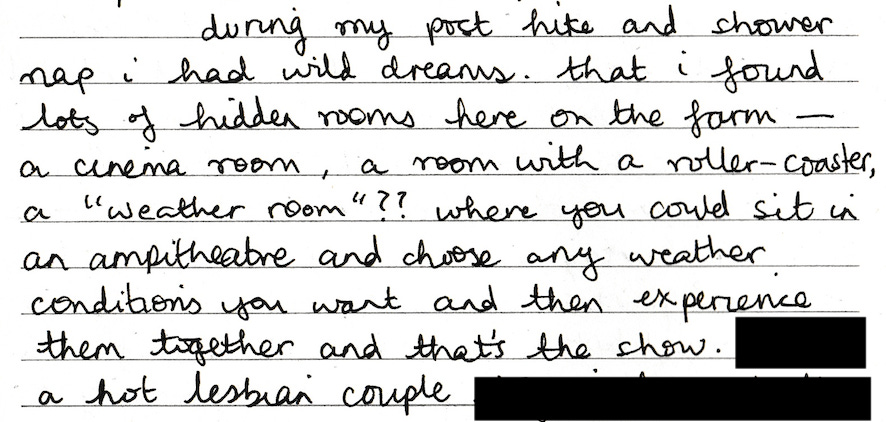 during my post hike and shower
nap i had wild dreams. that i found
lots of hidden rooms here on the farm —
a cinema room, a room with a roller-coaster,
a "weather room"?? where you could sit in
an ampitheatre and choose any weather
conditions you want and then experience
them together and that's the show.
a hot lesbian couple